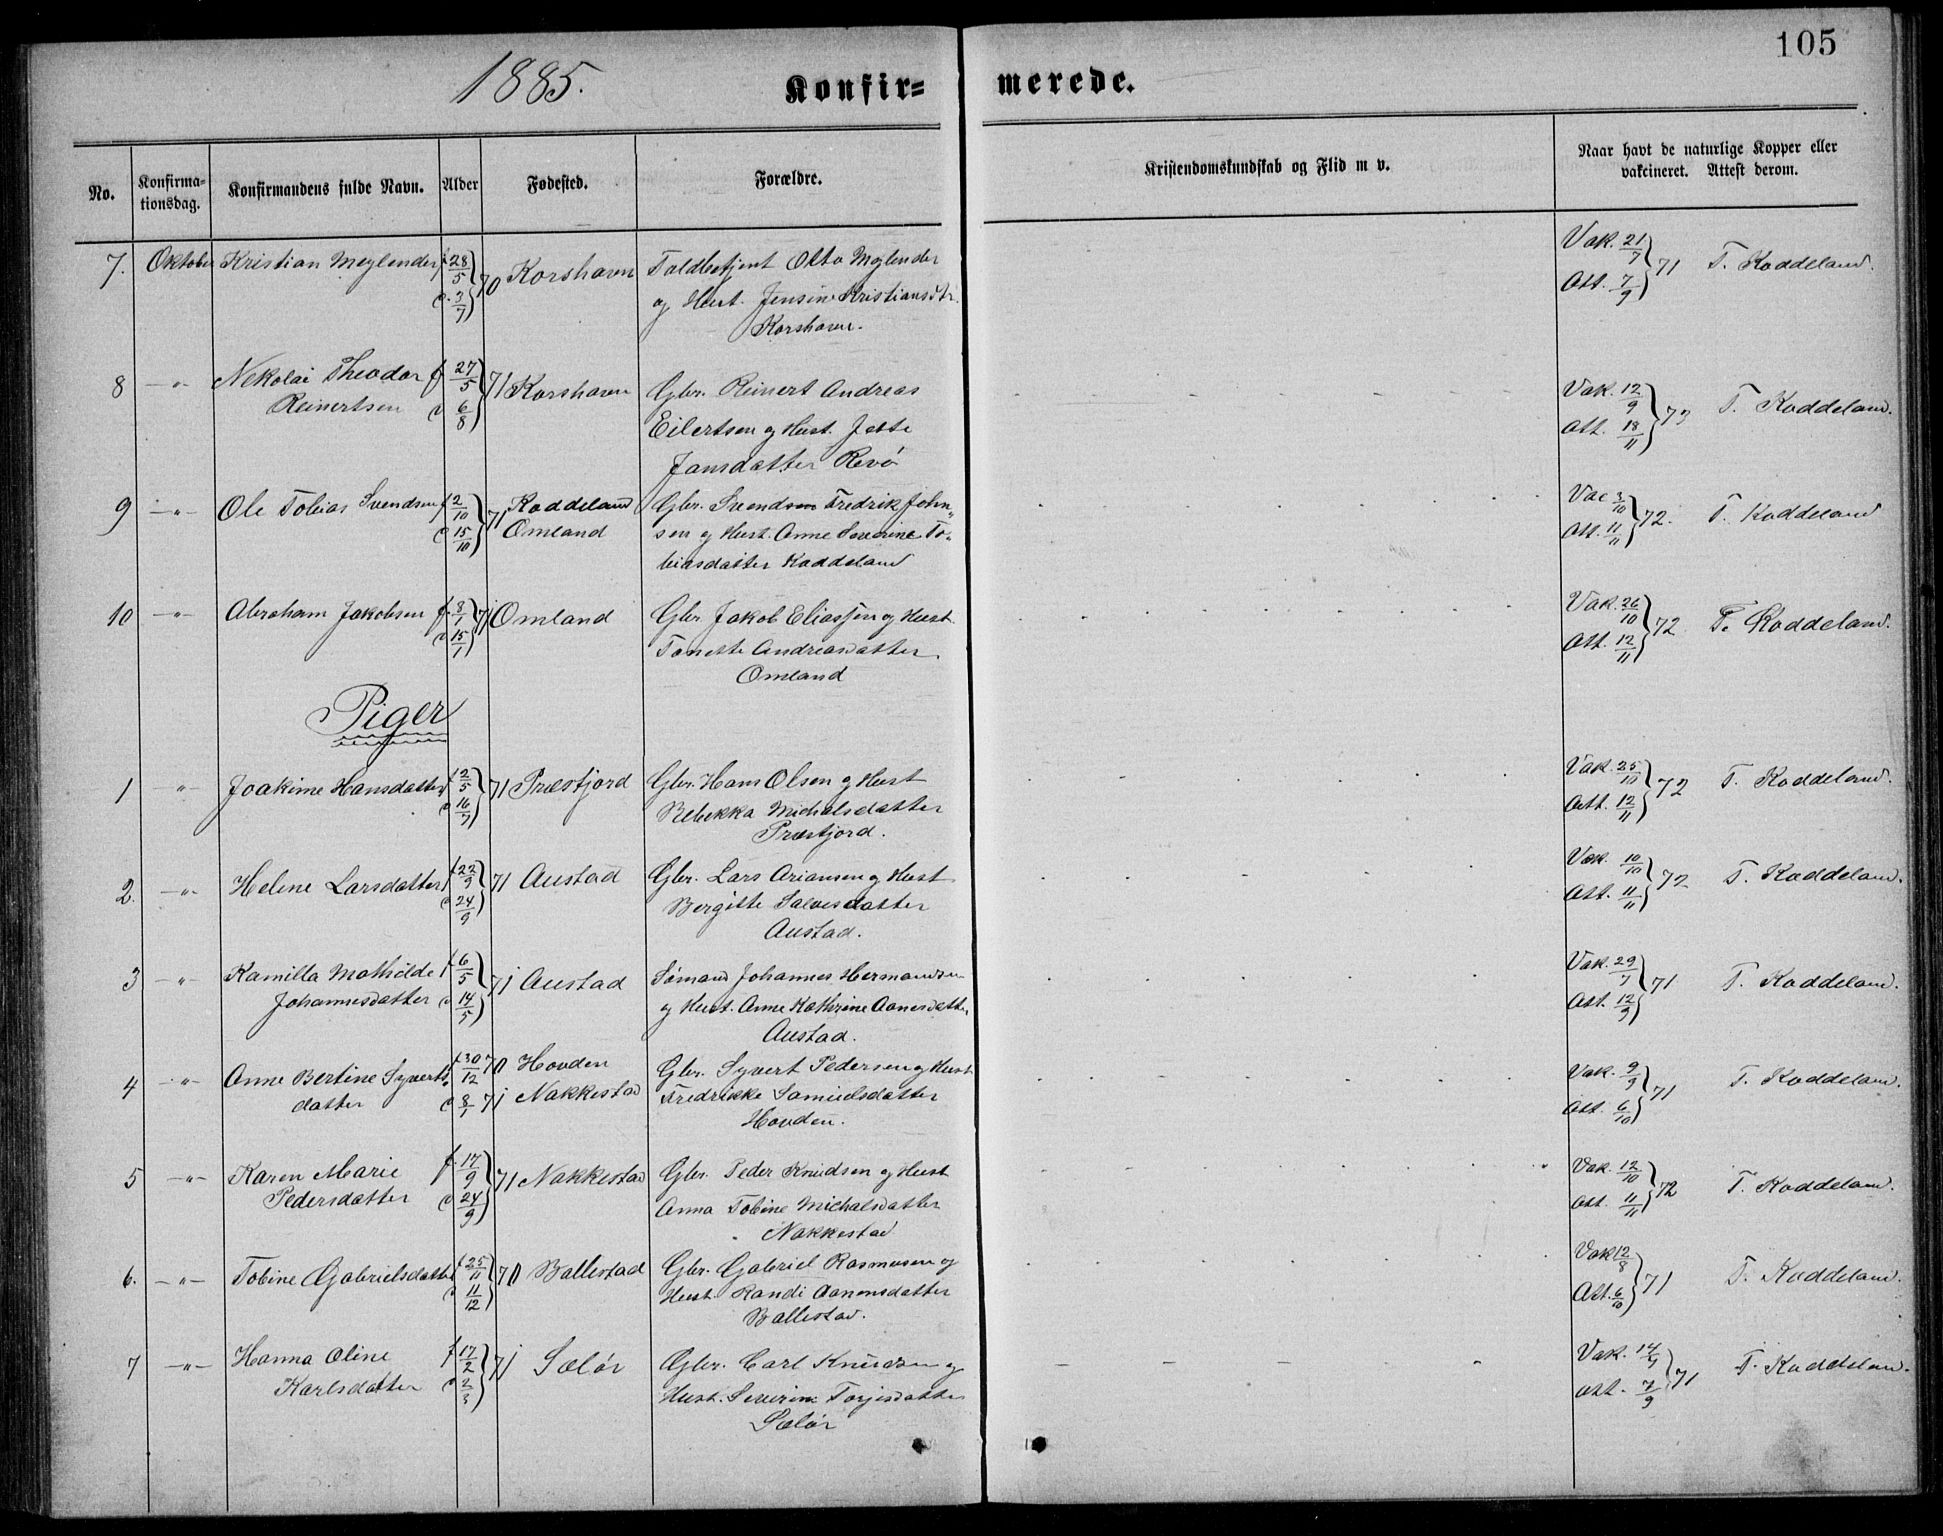 105
1885.
Konfir= merede.
No. Konfirma-tionsdag. Konfirmandens fulde Navn. Alder Fødested. Forældre. Kristendomskundskab og Flid m v. Naar havt de naturlige Kopper eller vakcineret. Attest derom.
7. Oktober Kristian Meglender f 28/5 70 Korshavn Toldbetjent Otto Meglender Vak. 21/7 71 T. Koddeland.
d. 3/7 og Hust. Jensine Kristiansdtr. Att. 7/9
Korshavn.
8 -"- Nekolai Theodor f 27/5 71 Korshavn Gbr. Reinert Andreas Vak. 12/9 73 T. Koddeland.
Reinertsen d 6/8 Eilertsen og Hust. Jette Att. 18/11
Jansdatter Revø
9 -"- Ole Tobias Svendsen f 2/10 71 Koddeland Gbr. Svendsen Fredrik John„ Vac 3/10 72. T. Koddeland
d 15/10 Omland sen og Hust. Anne Severine To„ Att. 11/11
biasdatter Koddeland
10 -"- Abraham Jakobsen f. 8/1 71 Omland Gbr. Jakob Eliassen og Hust Vak. 26/10 72 T. Koddeland.
d 15/1 Tonette Andreasdatter Att. 12/11
Omland
Piger
1 " Joakime Hansdatter f 2/5 71 Præstfjord Gbr. Hans Olsen og Hust Vak. 25/10 72 T. Koddeland.
d 16/7 Rebekka Michalsdatter Att. 12/11
Præstfjord.
2. -"- Helene Larsdatter f 22/9 71 Austad Gbr. Lars Ariansen og Hust Vak. 10/10 72 T. Koddeland.
d 24/9 Bergitte Salvesdatter Att. 11/11
Austad.
3 -"- Kamilla Mathilde f 6/5 71 Austad Sømand Johannes Hermandsen Vak. 29/7 71 T. Koddeland.
Johannesdatter d 14/5 og Hust. Anne Kathrine Aanesdatter Att. 12/9
Austad.
4 -"- Anne Bertine Syverts f 30/12 70 Hovden Gbr. Syvert Pedersen og Hust Vak. 9/9 71 T. Koddeland.
datter d 8/1 71 Nakkestad Fredrikke Samuelsdatter Att. 6/10
Hovden.
5 -"- Karen Marie f. 17/9 71 Nakkestad Gbr. Peder Knudsen og Hust Vak. 12/10 72 T. Koddeland.
Pedersdatter d 24/9 Anna Tobine Michalsdatter Att. 11/11
Nakkestad
6. -"- Tobine Gabrielsdatter f 25/11 70 Ballestad Gbr. Gabriel Rasmusen og Vak 12/8 71 T. Koddeland.
d 11/12 Hust. Randi Aanensdatter Att. 6/10
Ballestad.
7 -"- Hanna Oline f 17/2 71 Sælør Gbr. Carl Knudsen og Vak. 14/7 71 T. Koddeland.
Karlsdatter d 2/3 Hust. Severine Torjisdatter Att. 7/9
Sælør